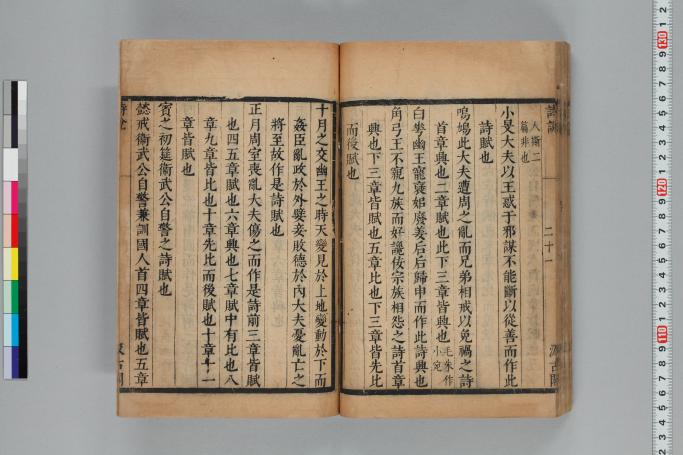 人衞二
篇非也
小旻大夫以王惑于邪謀不能斷以從善而作此
詩賦也
鳴鳩此大夫遭周之亂而兄弟相戒以免禍之詩
首章興也二章賦也此下三章皆興也 毛朱作小宛
白華幽王寵褒姒廢姜后后歸申而作此詩興也
角弓王不親九族而好讒佞宗族相怨之詩首章
興也下三章皆賦也五章比也下三章皆先比
而後賦也
二十一
汲古閣
十月之交幽王之時天變見於上地變動於下而
姦臣亂政於外嬖妾敗德於內大夫憂亂亡之
將至故作是詩賦也
正月周室喪亂大夫傷之而作是詩前三章皆賦
也四五章賦也六章興也七章賦中有比也八
章九章皆比也十章先比而後賦也十章十一
章皆賦也
賓之初筵衞武公自警之詩賦也
懿戒衞武公自警兼訓國人首四章皆賦也五章
汲古閣
110
120
130